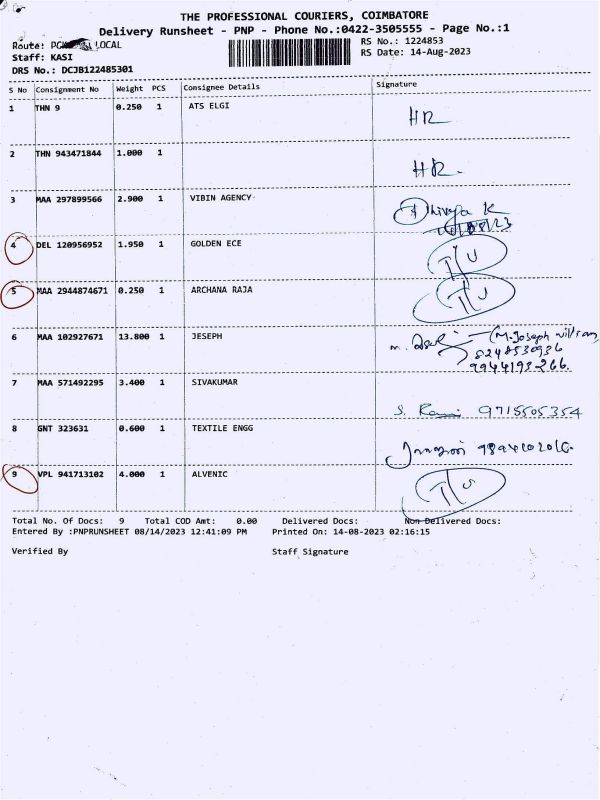 THE PROFESSIONAL COURIERS, COIMBATORE
Delivery Runsheet - PNP - Phone No.:0422-3505555 - Page No.:1
Route: LOCAL
RS No.: 1224853
Staff: KASI
RS Date: 14-Aug-2023
DRS No.: DCJB122485301
S No Consignment No Weight PCS Consignee Details Signature
1 THN 9 0.250 1 ATS ELGI HR
2 THN 943471844 1.000 1 HR.
3 MAA 297899566 2.900 1 VIBIN AGENCY Dhivya K
4 DEL 120956952 1.950 1 GOLDEN ECE
5 MAA 2944874671 0.250 1 ARCHANA RAJA
6 MAA 102927671 13.800 1 JESEPH (M. Joseph william
8248530936
9944193266.
7 MAA 571492295 3.400 1 SIVAKUMAR S. 9715505354
8 GNT 323631 0.600 1 TEXTILE ENGG
9 VPL 941713102 4.000 1 ALVENIC
Total No. Of Docs: 9 Total COD Amt: 0.00 Delivered Docs: Non Delivered Docs:
Entered By :PNPRUNSHEET 08/14/2023 12:41:09 PM Printed On: 14-08-2023 02:16:15
Verified By Staff Signature